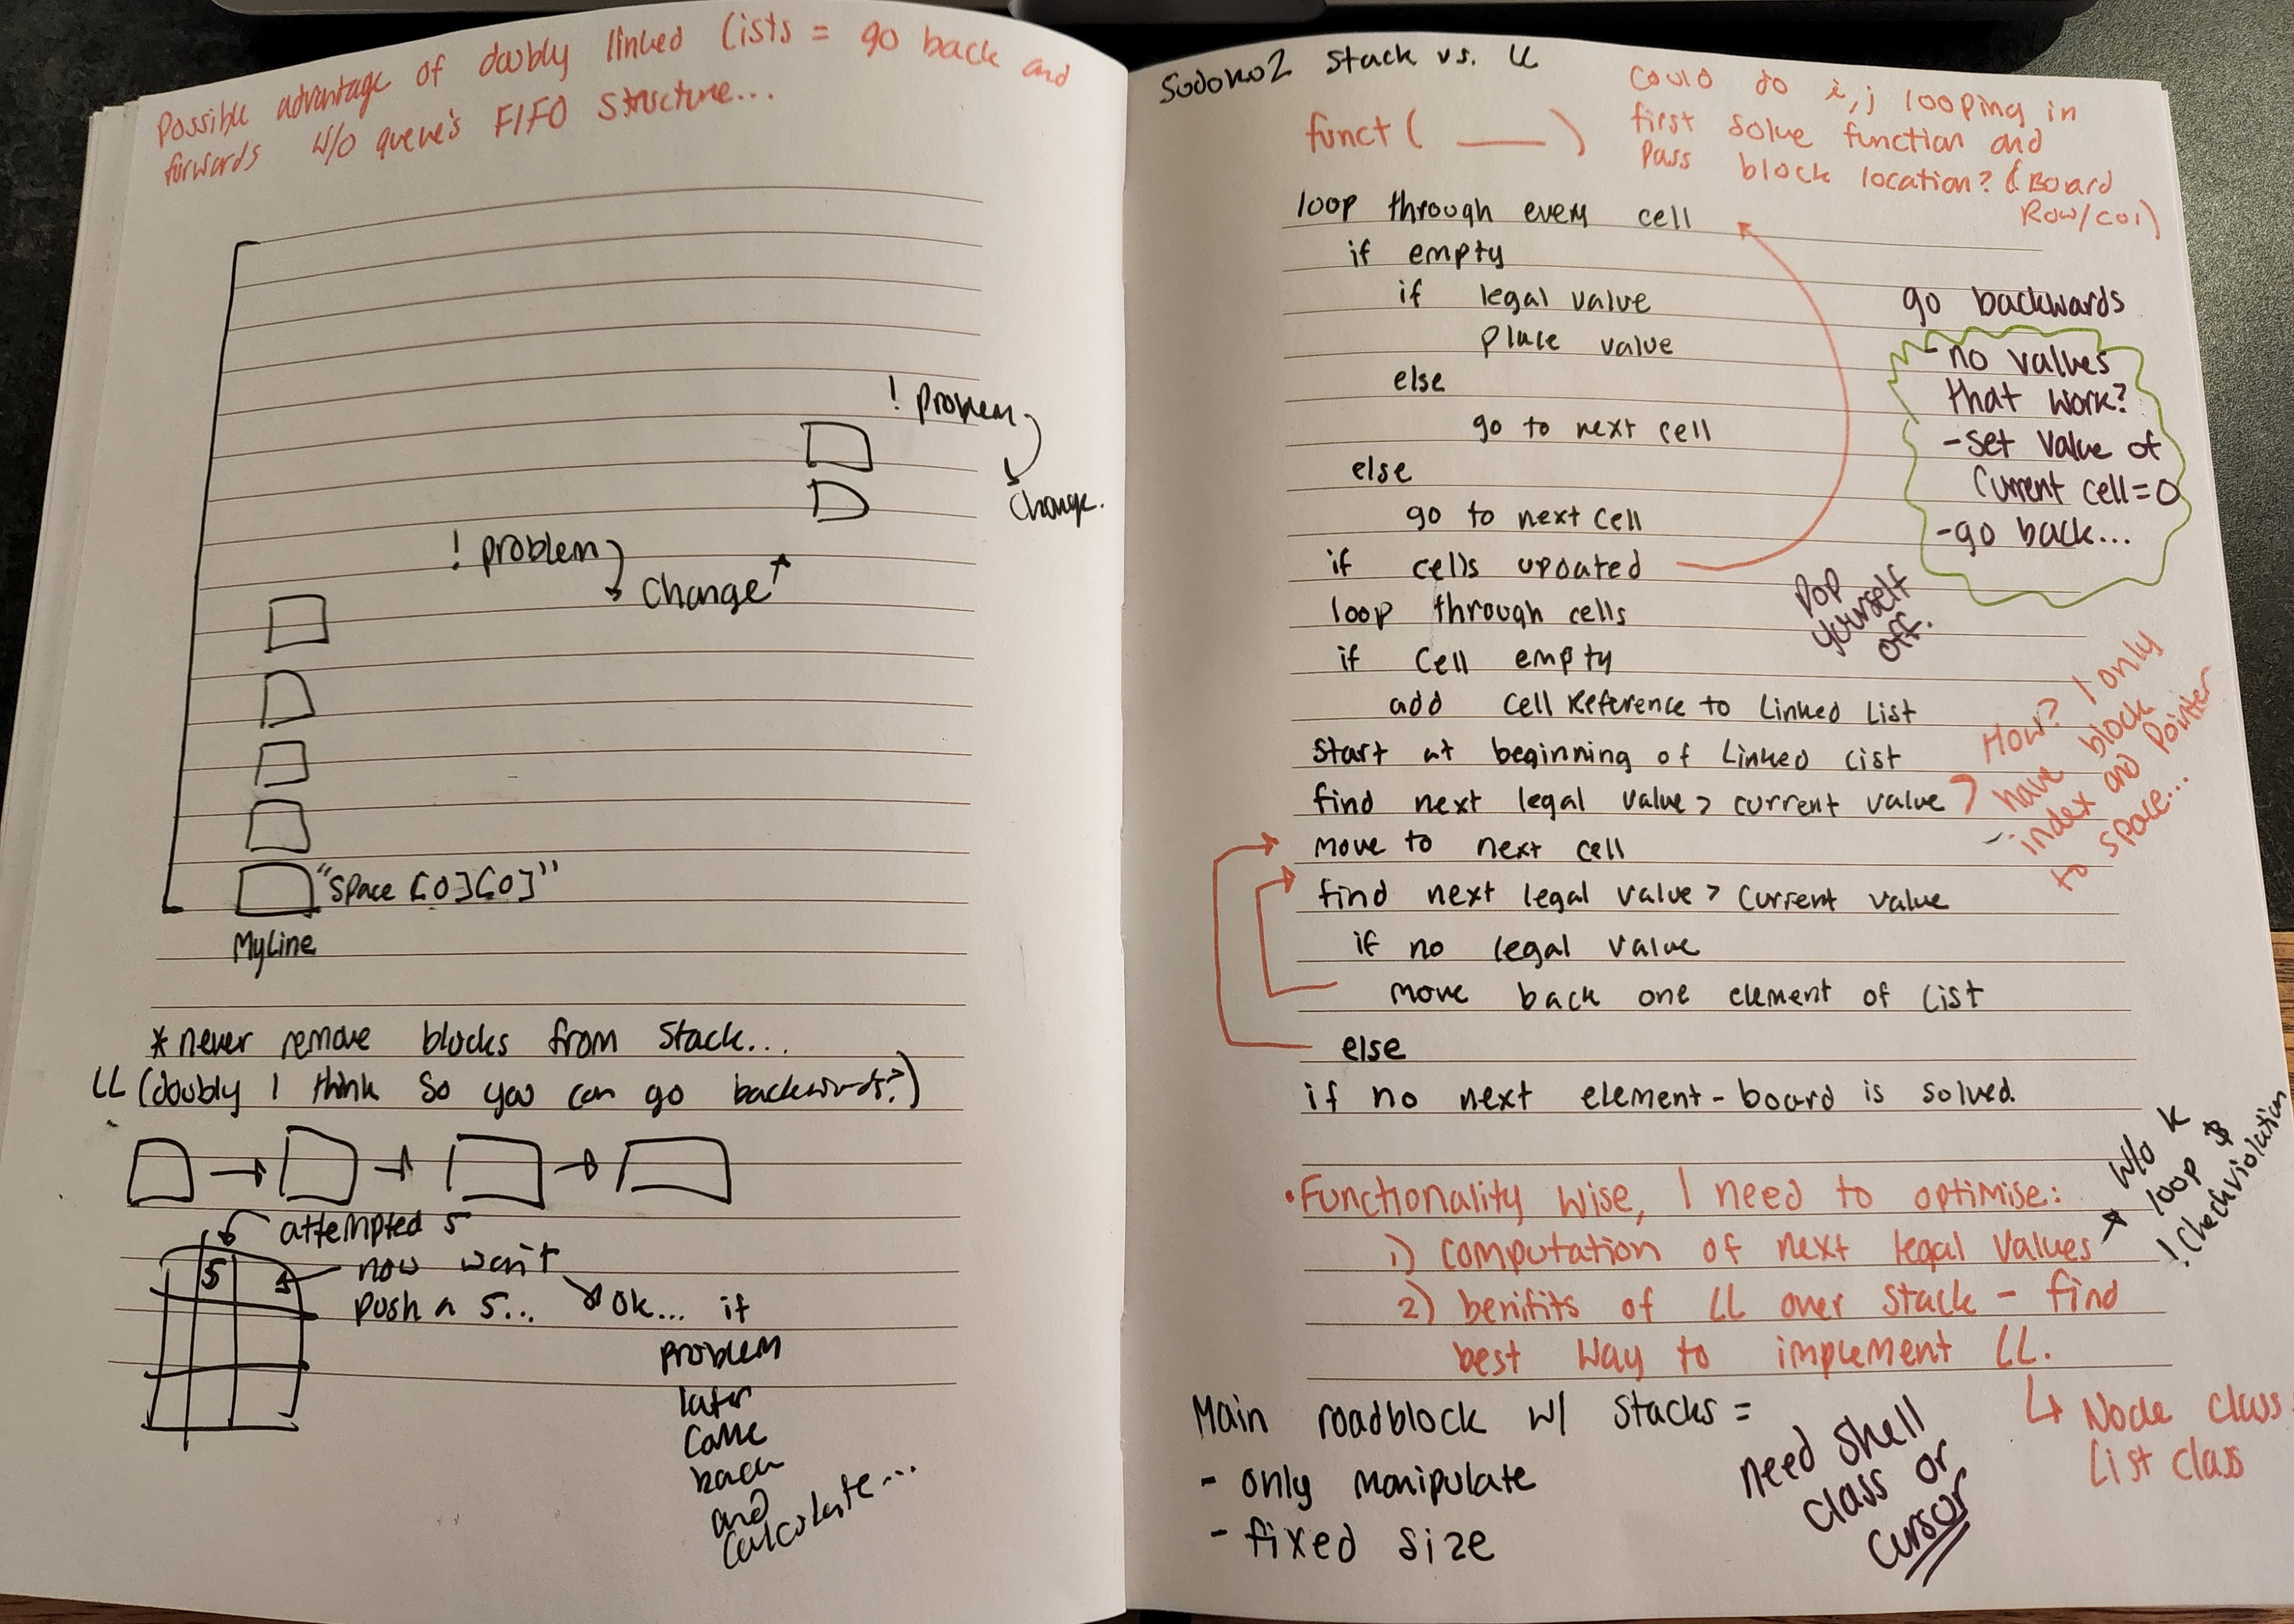 Possible advantage of doubly linked lists = go back and
forwards w/o queue's FIFO structure...
! problem
change.
! problem
change
"space [0][0]"
MyLine
*never remove blocks from stack...
LL (doubly I think so you can go backwards?)
attempted 5
5
now won't
push a 5...
ok... if
problem
later
come
back
and
calculate...
Sodoko2 stack vs. LL
funct ( ___ )
could do i,j looping in
first solve function and
pass block location? (Board
Row/col)
loop through every cell
if empty
if legal value
place value
else
go to next cell
else
go to next cell
if cells updated
loop through cells
if cell empty
add cell reference to linked list
start at beginning of linked list
find next legal value > current value
move to next cell
find next legal value > current value
if no legal value
move back one element of list
else
if no next element - board is solved.
go backwards
- no values
that work?
- set value of
current cell=0
- go back...
pop
yourself
off.
How? I only
have block
index and pointer
to space...
• Functionality wise, I need to optimise:
1) computation of next legal values
w/o k
loop &
! checkviolation
2) benifits of LL over stack - find
best way to implement LL.
↳ Node class
List class
Main roadblock w/ stacks =
- only manipulate
- fixed size
need shell
class or
cursor